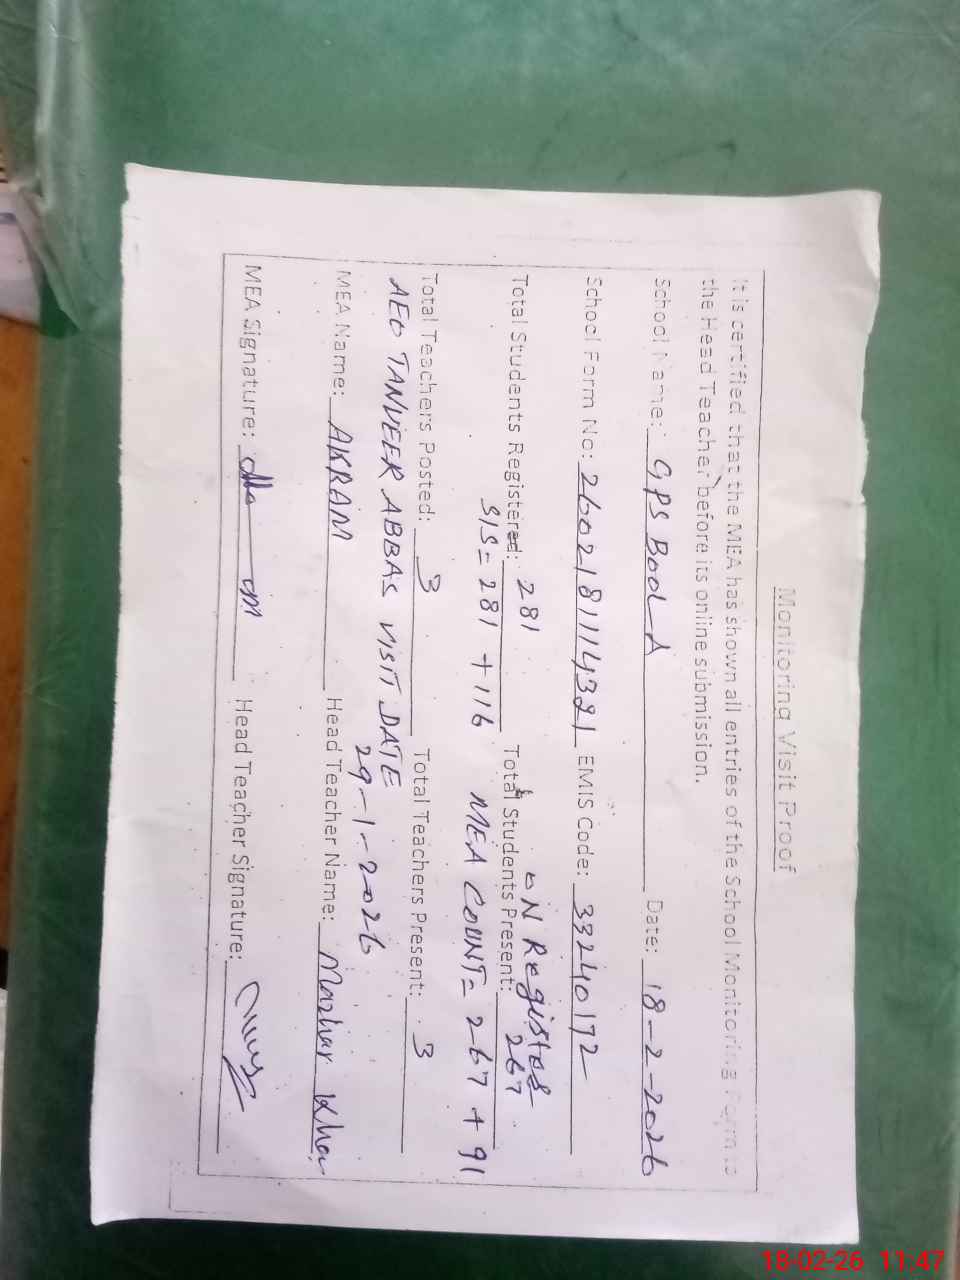 Monitoring Visit Proof
It is certified that the MEA has shown all entries of the School Monitoring Form to
the Head Teacher before its online submission.
School Name: GPS Bool A Date: 18-2-2026
School Form No: 2602181114391 EMIS Code: 33240172
ON Register
Total Students Registered: 281 Total Students Present: 267
SIS = 281 + 116 MEA COUNT = 267 + 91
Total Teachers Posted: 3 Total Teachers Present: 3
AEO TANVEER ABBAS VISIT DATE 29-1-2026
MEA Name: AKRAM Head Teacher Name: Mazhar Khan
MEA Signature: Head Teacher Signature:
18-02-26 11:47